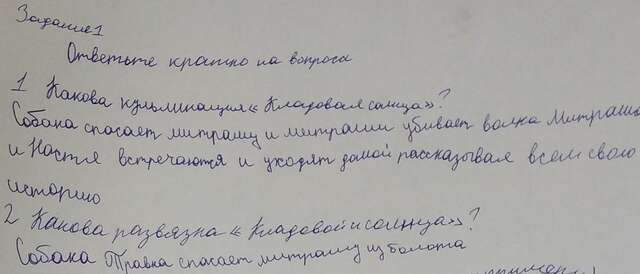 Задание 1
Ответьте кратко на вопросы
1 Какова кульминация «Кладовая солнца»?
Собака спасает митрашу и митраши убивает волка Митраша
и Настя встречаются и уходят домой рассказывая всем свою
историю
2 Какова развязка «Кладовой солнца»?
Собака Травка спасает митрашу из болота